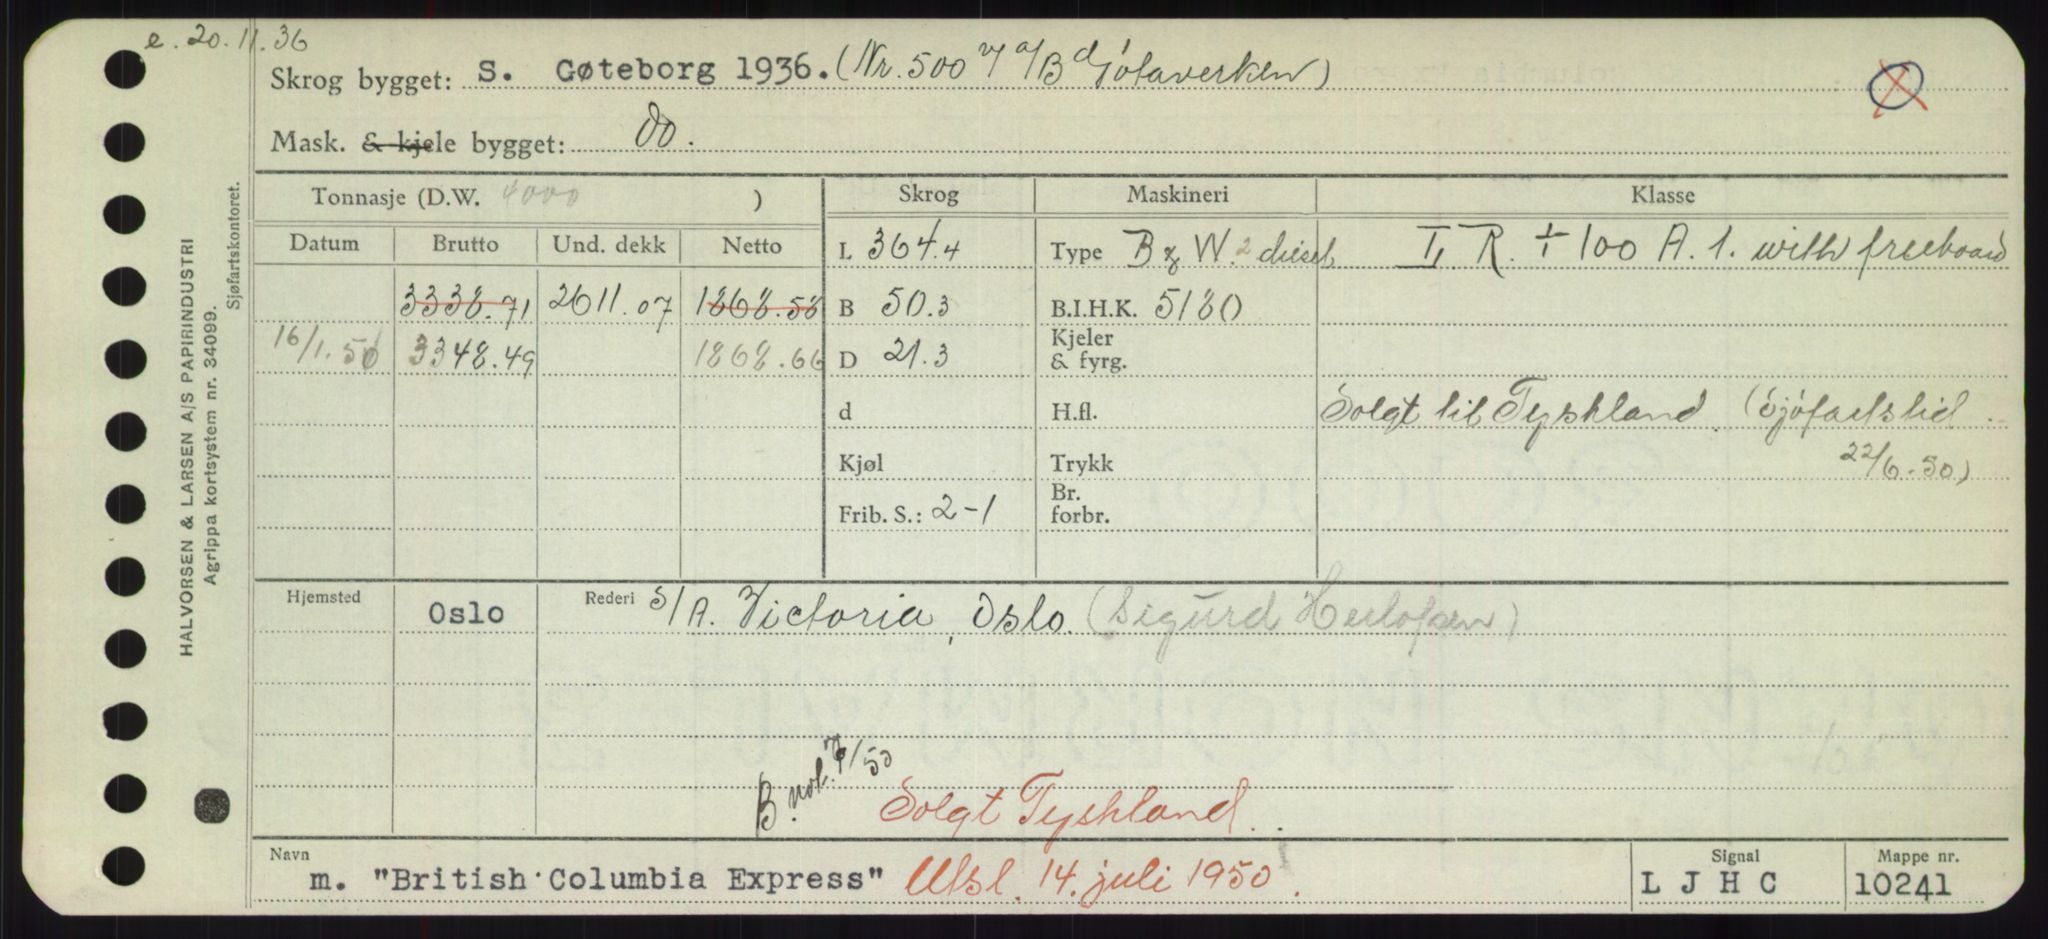 e. 20.11.36
Skrog bygget: S. Gøteborg 1936. (Nr. 500 v/ A/B Götaverken)
Mask. & kjele bygget: Do.
Tonnasje (D.W. 4000 )
Skrog Maskineri Klasse
Datum Brutto Und. dekk Netto
L 364.4 Type B & W. 2 diesel, L. R. + 100 A. 1. with freeboard
3338.71 2611.07 1868.58 B 50.3 B.I.H.K. 5180
16/1.50 3348.49 1868.66 D 21.3 Kjeler & fyrg.
d H.fl. Solgt til Tyskland. (Sjöfartstid
22/6.50)
Kjøl Trykk
Frib. S.: 2-1 Br. forbr.
Hjemsted Oslo Rederi S/A. Victoria, Oslo. (Sigurd Herlofsen)
B. not. 7/50
Solgt Tyskland.
Navn m. "British Columbia Express" Utsl. 14. juli 1950.
Signal L J H C
Mappe nr. 10241
HALVORSEN & LARSEN A/S PAPIRINDUSTRI
Agrippa kortsystem nr. 34099.
Sjøfartskontoret.